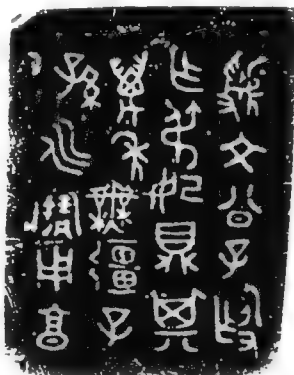 虢文公子㲃
乍弔妃鼎其
萬年無疆子
孫永寶用亯